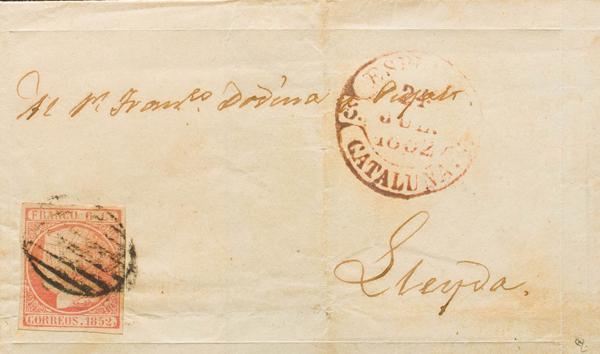 Al Sr. Franco Dodina y Pigol
ESPL
24
JUL.
1852
CATALUÑA.
FRANCO. 6
CORREOS. 1852.
Lleyda.